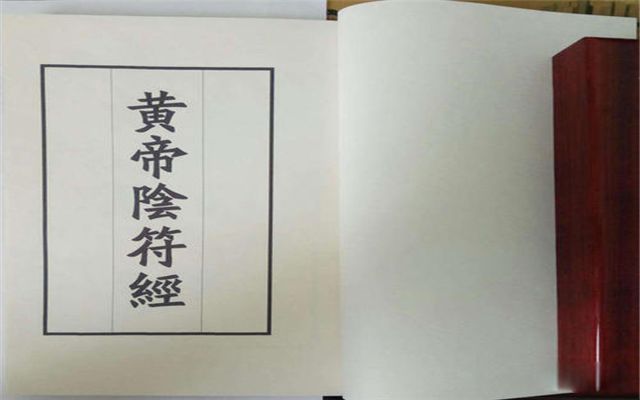 黄帝陰符經